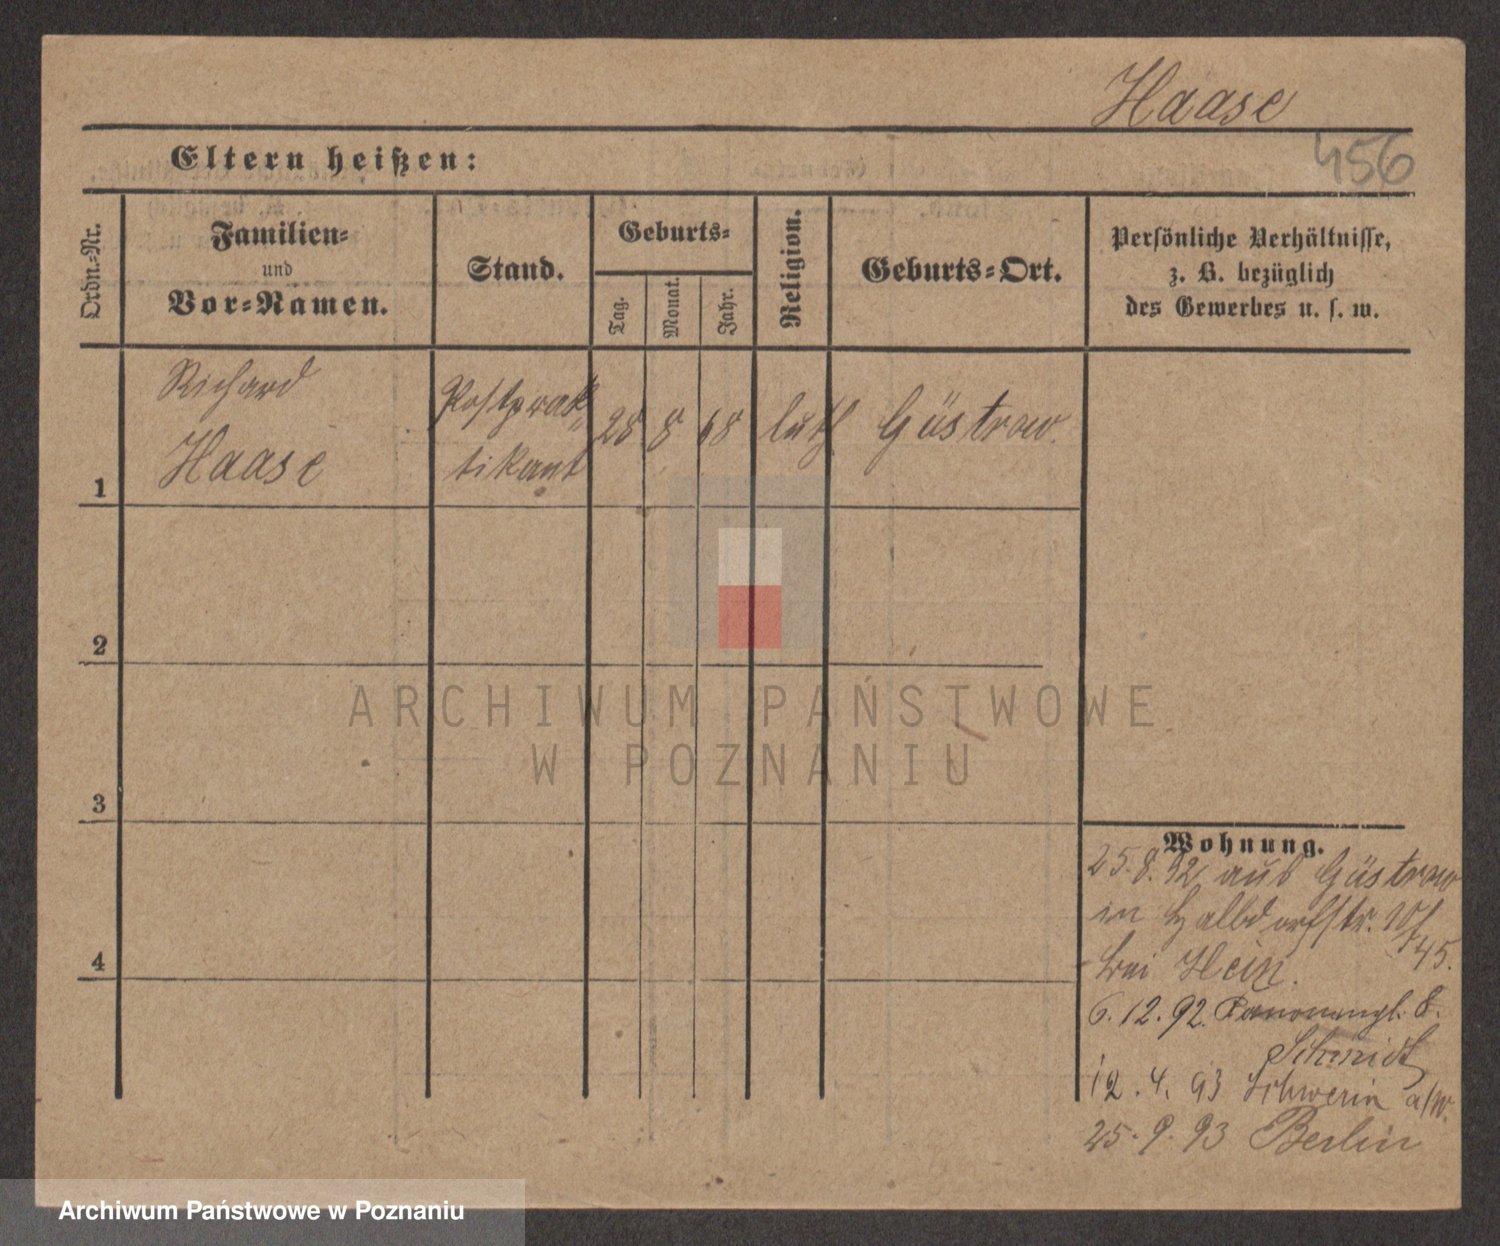 Haase
456
Eltern heißen:
Ordn.-Nr.
Familien-
und
Vor-Namen.
Stand.
Geburts-
Tag.
Monat.
Jahr.
Religion.
Geburts-Ort.
Persönliche Verhältnisse,
z. B. bezüglich
des Gewerbes u. s. w.
1
Richard
Haase
Postprak-
tikant
28
8
68
luth
Güstrow.
2
3
4
Wohnung.
25.8.92 aus Güstrow
in Halbdorfstr.
bei Hein.
6.12.92. 8.
Schmidt
12.4.93 Schwerin a/W.
25.9.93 Berlin
ARCHIWUM PAŃSTWOWE
W POZNANIU
Archiwum Państwowe w Poznaniu